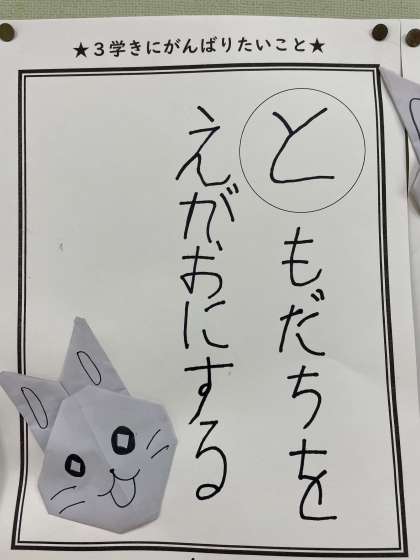 ★3学きにがんばりたいこと★
ともだちを
えがおにする